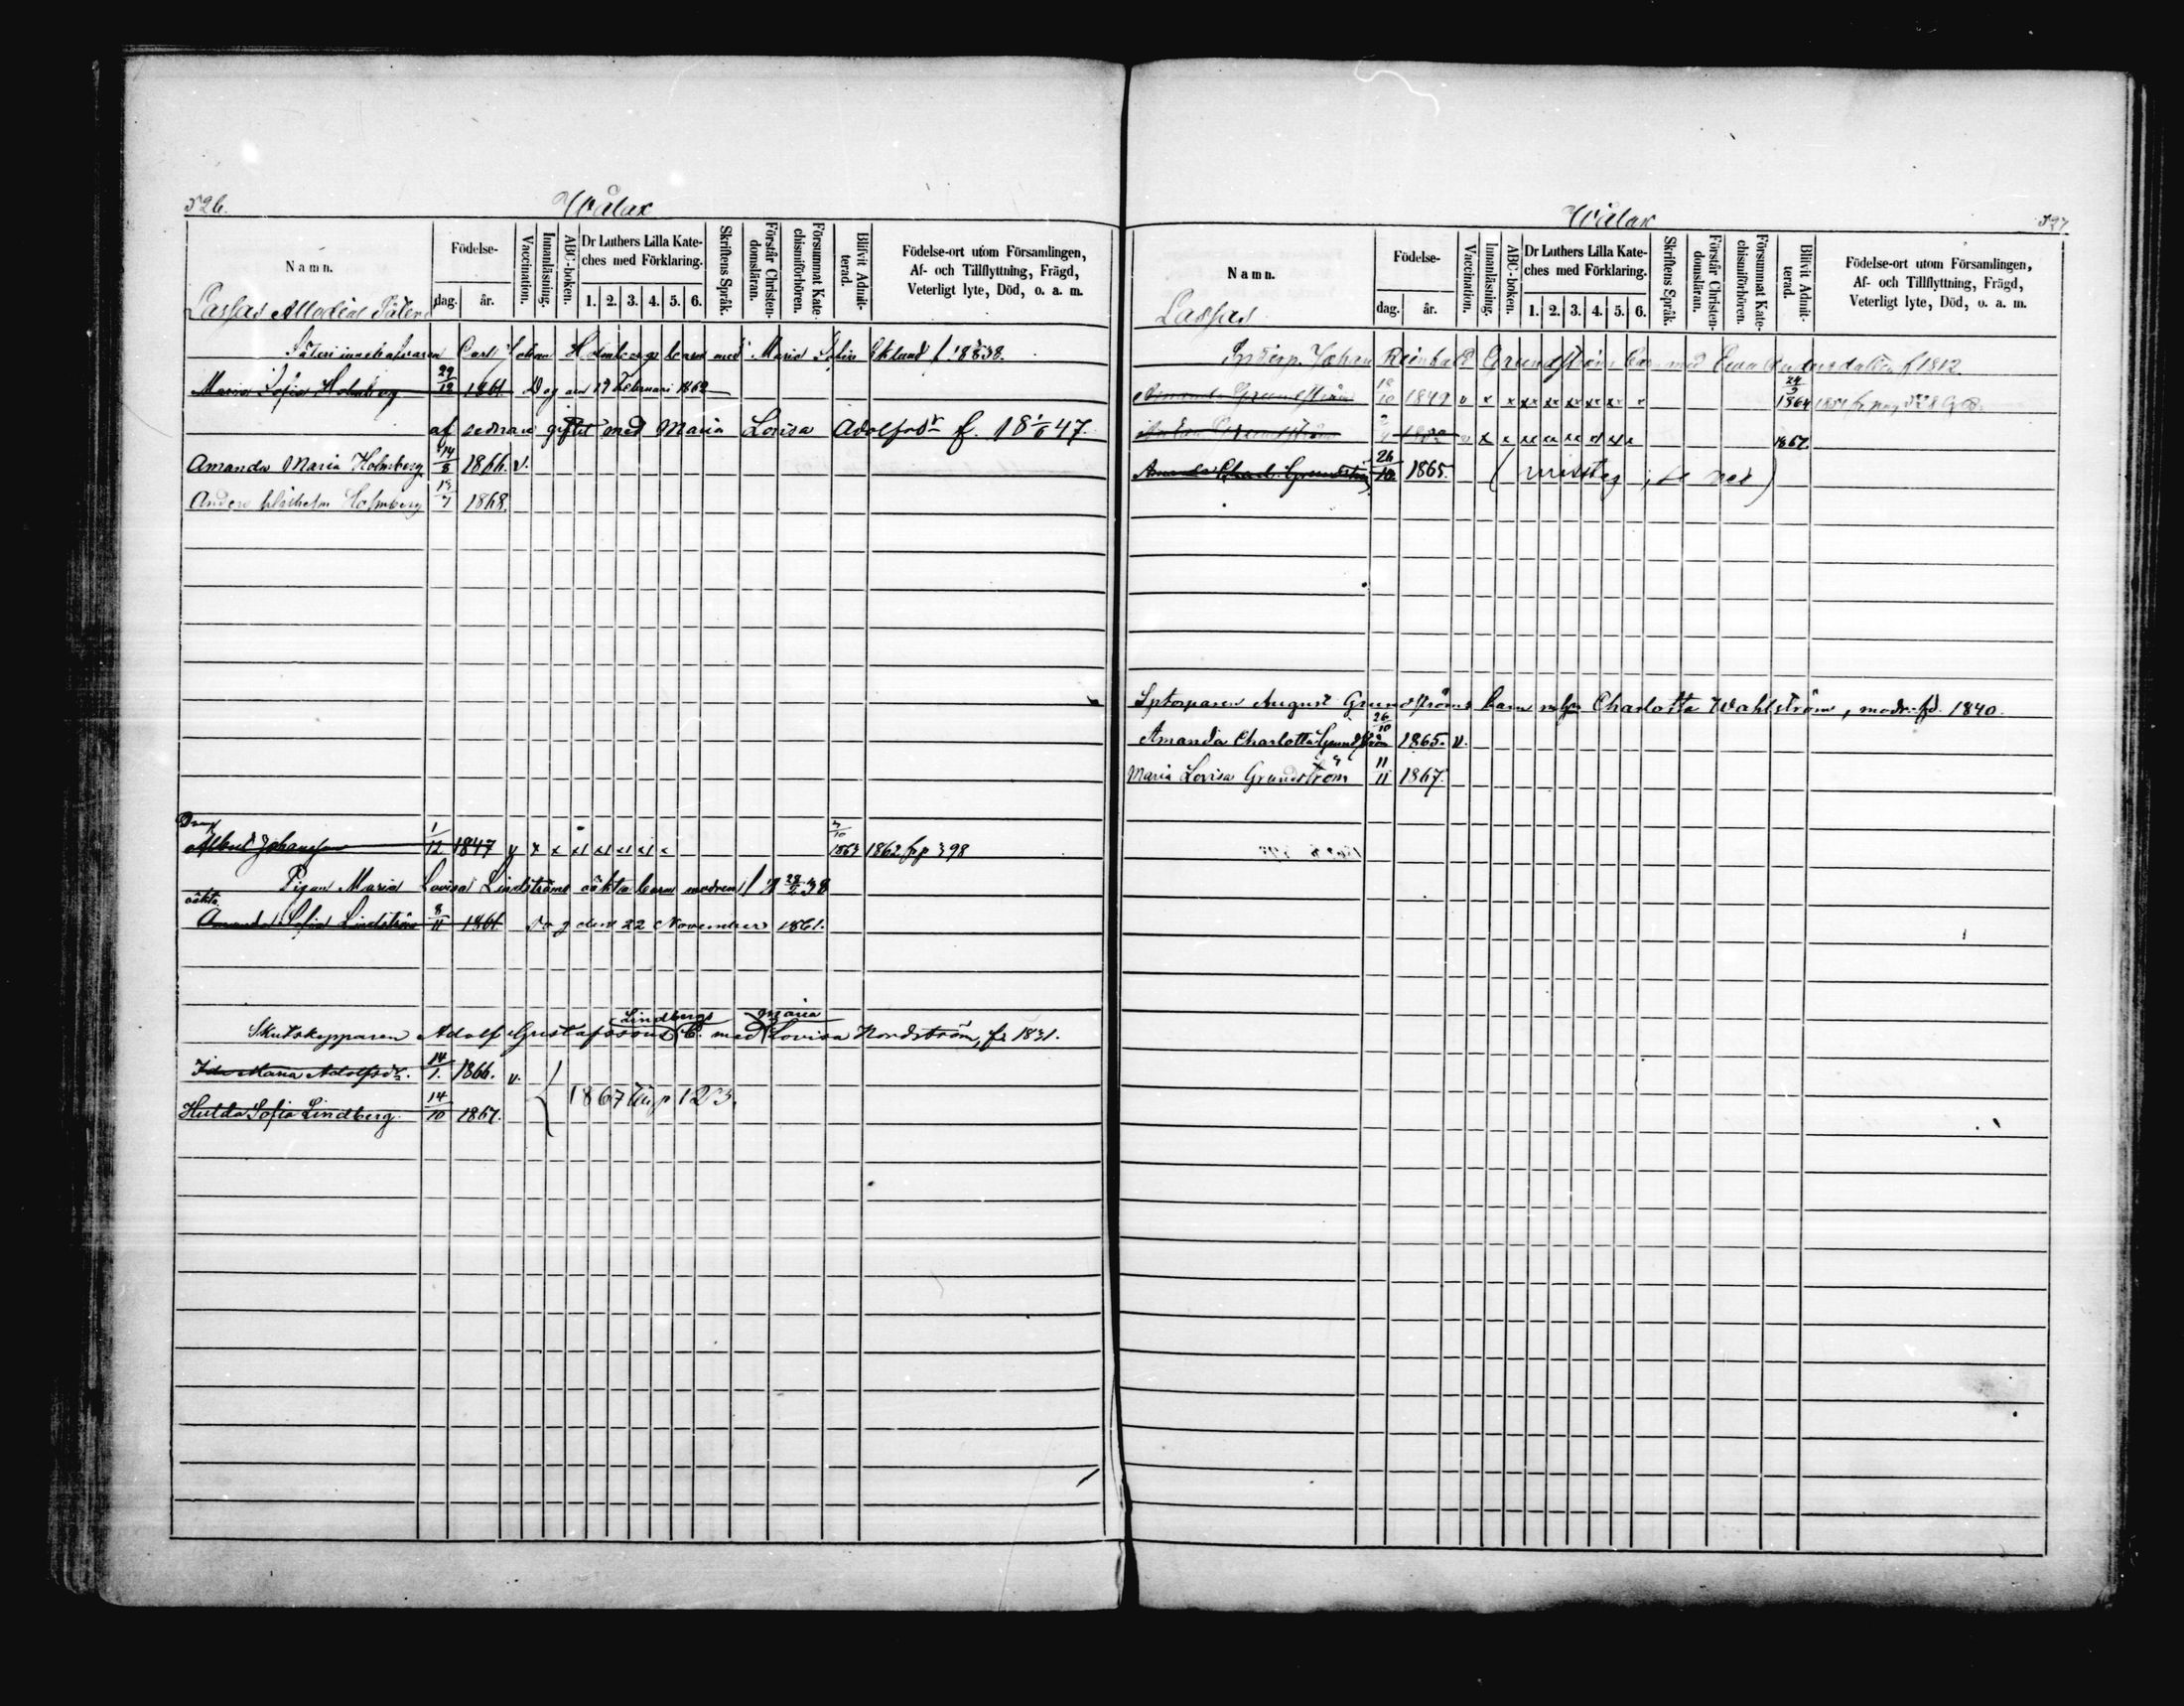 526.
Wålax
Namn.
Födelse-
dag. år.
Vaccination.
Innanläsning.
ABC-boken.
Dr Luthers Lilla Kate-
ches med Förklaring.
1. 2. 3. 4. 5. 6.
Skriftens Språk.
Förstår Christen-
domsläran.
Försummat Kate-
chismiförhören.
Blifvit Admit-
terad.
Födelse-ort utom Församlingen,
Af- och Tillflyttning, Frägd,
Veterligt lyte, Död, o. a. m.
Lassas Allodial Säteri
Säteri innehafvaren Carl Johan Holmbergs barn med Maria Sofia Eklund f. 1838.
Maria Sofia Holmberg 29/12 1861. Dog den 17 Februari 1862
af sednare giftet med Maria Lovisa Adolfsdr f. 18 1/6 47.
Amanda Maria Holmberg 14/8 1866. v.
Anders Wilhelm Holmberg 13/7 1868.
Dräng
Albert Johansson 1/12 1847 v x x x x x x x x 3/10 1863 1862 fr p 398
Pigan Maria Lovisa Lindströms oäkta barn modren f.
oäkta
Amanda Sofia Lindström 8/11 1861 dog den 22 November 1861.
Lindbergs Maria
Skutskepparen Adolf Gustafssons b. med Lovisa Nordström, f. 1831.
Ida Maria Adolfsdr. 14/1. 1866. v.
1867 till p 123.
Hulda Sofia Lindberg. 14/10 1867.
Wålax
527
Namn.
Födelse-
dag. år.
Vaccination.
Innanläsning.
ABC-boken.
Dr Luthers Lilla Kate-
ches med Förklaring.
1. 2. 3. 4. 5. 6.
Skriftens Språk.
Förstår Christen-
domsläran.
Försummat Kate-
chismiförhören.
Blifvit Admit-
terad.
Födelse-ort utom Församlingen,
Af- och Tillflyttning, Frägd,
Veterligt lyte, Död, o. a. m.
Lassas
Johan Reinhold Grundströms barn med Ewa Andersdotter f. 1812
Amanda Grundström 18/10 1849 v x x xx xx xx xx xx x 24/9 1864
Grundström v x x xx xx xx xx x 1867.
Amanda Charl. Grundström 26/10 1865. (misstag, se ned)
Sptorparen August Grundströms barn m. Charlotta Wahlström, modr. fd. 1840.
Amanda Charlotta Grundström 26/10 1865. v.
Maria Lovisa Grundström 11/11 1867.